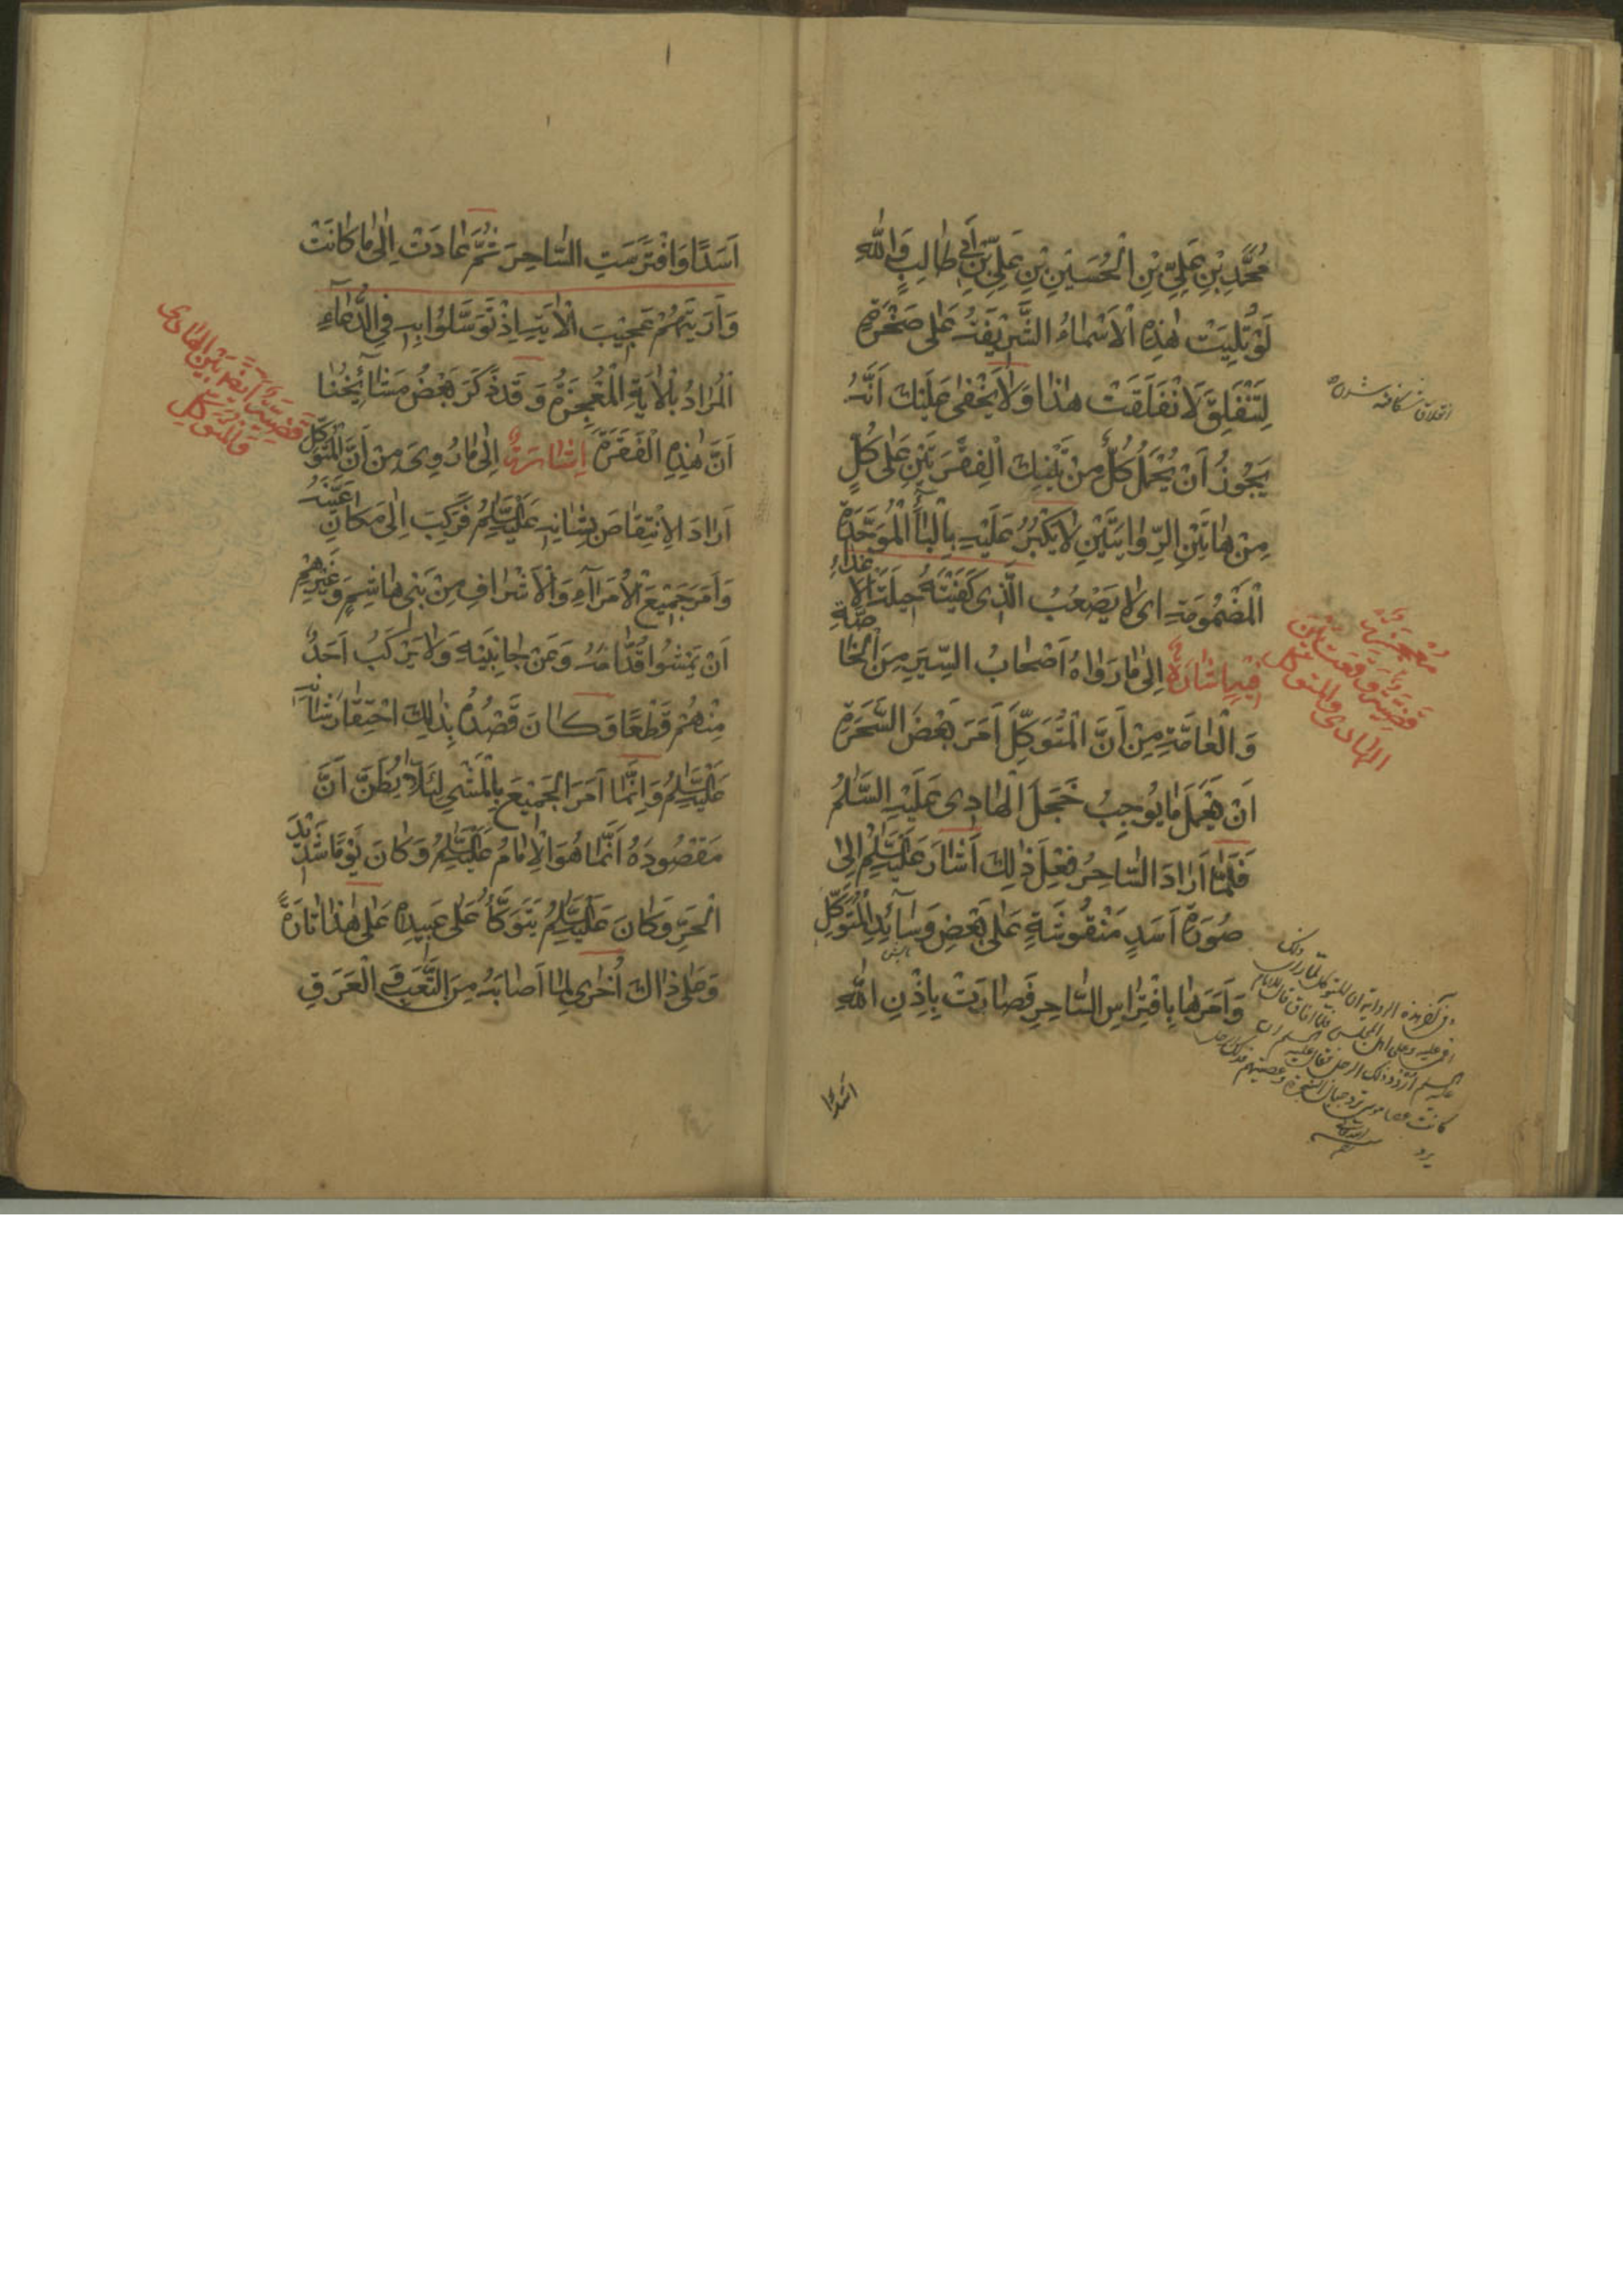 مُحَمَّدِ بْنِ عَلِيِّ بْنِ الْحُسَيْنِ بْنِ عَلِيِّ بْنِ أَبِي طَالِبٍ وَاللّٰهِ
لَوْ تُلِيَتْ هٰذِهِ الْأَسْمَاءُ الشَّرِيفَةُ عَلٰى صَخْرَةٍ
لِتَنْفَلِقَ لَانْفَلَقَتْ هٰذَا وَلَا يَخْفٰى عَلَيْكَ أَنَّهُ
يَجُوزُ أَنْ يُحْمَلَ كُلٌّ مِنْ تَيْنِكَ الْفِقْرَتَيْنِ عَلٰى كُلٍّ
مِنْ هَاتَيْنِ الرِّوَايَتَيْنِ لَا يَكْبُرُ عَلَيْهِ بِالْبَاءِ الْمُوَحَّدَةِ
الْمَضْمُومَةِ اى لَا يَصْعُبُ الَّذِى كَفَيْتَهُ حِيلَةَ الْأَعْدَاءِ
فِيهِ إِشَارَةٌ إِلٰى مَا رَوَاهُ أَصْحَابُ السِّيَرِ مِنَ الْخَاصَّةِ
وَالْعَامَّةِ مِنْ أَنَّ الْمُتَوَكِّلَ أَمَرَ بَعْضَ السَّحَرَةِ
أَنْ يَعْمَلَ مَا يُوجِبُ خَجَلَ الْهَادِى عَلَيْهِ السَّلٰمُ
فَلَمَّا أَرَادَ السَّاحِرُ فِعْلَ ذٰلِكَ أَشَارَ عَلَيْهِ السَّلٰمُ إِلٰى
صُورَةِ أَسَدٍ مَنْقُوشَةٍ عَلٰى بَعْضِ وَسَائِدِ الْمُتَوَكِّلِ
وَأَمَرَهَا بِافْتِرَاسِ السَّاحِرِ فَصَارَتْ بِإِذْنِ اللّٰهِ
اسَدًا
انفلاق شکافته شدن
مُعْجِزَةٌ
قَضِيَّةٌ وَقَعَتْ بَيْنَ
الهادى والمتوكل
أَسَدًا وَافْتَرَسَتِ السَّاحِرَ ثُمَّ عَادَتْ إِلٰى مَا كَانَتْ
وَأَرَيْتَهُمْ عَجِيبَ الْآيَةِ إِذْ تَوَسَّلُوا بِهِ فِي الدُّعَاءِ
الْمُرَادُ بِالْآيَةِ الْمُعْجِزَةُ وَقَدْ ذَكَرَ بَعْضُ مَشَائِخِنَا
أَنَّ هٰذِهِ الْفَقَرَةَ إِشَارَةٌ إِلٰى مَا رُوِىَ مِنْ أَنَّ الْمُتَوَكِّلَ
أَرَادَ الِانْتِقَاصَ بِشَانِهِ عَلَيْهِ السَّلٰمُ فَرَكِبَ إِلٰى مَكَانٍ عَيَّنَهُ
وَأَمَرَ جَمِيعَ الْأُمَرَاءِ وَالْأَشْرَافِ مِنْ بَنِى هَاشِمٍ وَغَيْرِهِمْ
أَنْ يَمْشُوا قُدَّامَهُ وَعَنْ جَانِبَيْهِ وَلَا يَرْكَبُ أَحَدٌ
مِنْهُمْ قَطْعًا وَكَانَ قَصْدُهُ بِذٰلِكَ احْتِقَارَ شَأْنِهِ
عَلَيْهِ السَّلٰمُ وَإِنَّمَا أَمَرَ الْجَمِيعَ بِالْمَشْىِ لِئَلَّا يُظَنَّ أَنَّ
مَقْصُودَهُ أَنَّمَا هُوَ الْإِمَامُ عَلَيْهِ السَّلٰمُ وَكَانَ يَوْمًا شَدِيدَ
الْحَرِّ وَكَانَ عَلَيْهِ السَّلٰمُ يَتَوَكَّأُ عَلٰى عَبِيدِهِ عَلٰى هٰذَا تَارَةً
وَعَلٰى ذَاكَ أُخْرٰى لِمَا أَصَابَهُ مِنَ التَّعَبِ وَالْعَرَقِ
قَضِيَّةٌ أَيْضًا بَيْنَ الهادى
والمتوكل